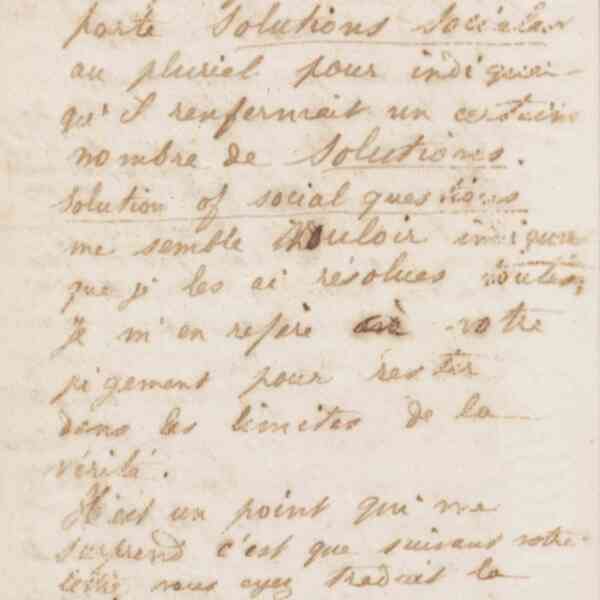 porte Solutions Sociales
au pluriel pour indiquer
qu'il renfermait un certain
nombre de Solutions.
Solution of social questions
me semble vouloir indiquer
que je les ai résolues toutes,
je m'en refère à votre
jugement pour rester
dans les limites de la
vérité.
Il est un point qui me
surprend c'est que suivant votre
lettre vous ayez traduit la